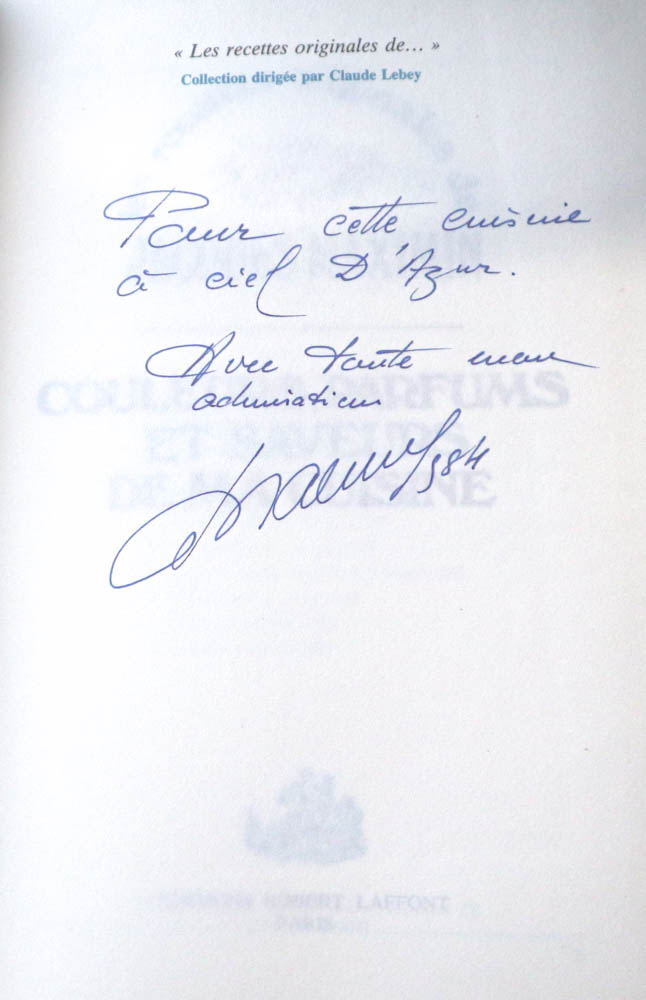 « Les recettes originales de... »
Collection dirigée par Claude Lebey
Pour cette cuisine
à ciel D'Azur.
Avec toute mon
admiration
1984
COULEURS PARFUMS
ET SAVEURS
DE MA CUISINE
ROBERT LAFFONT
PARIS